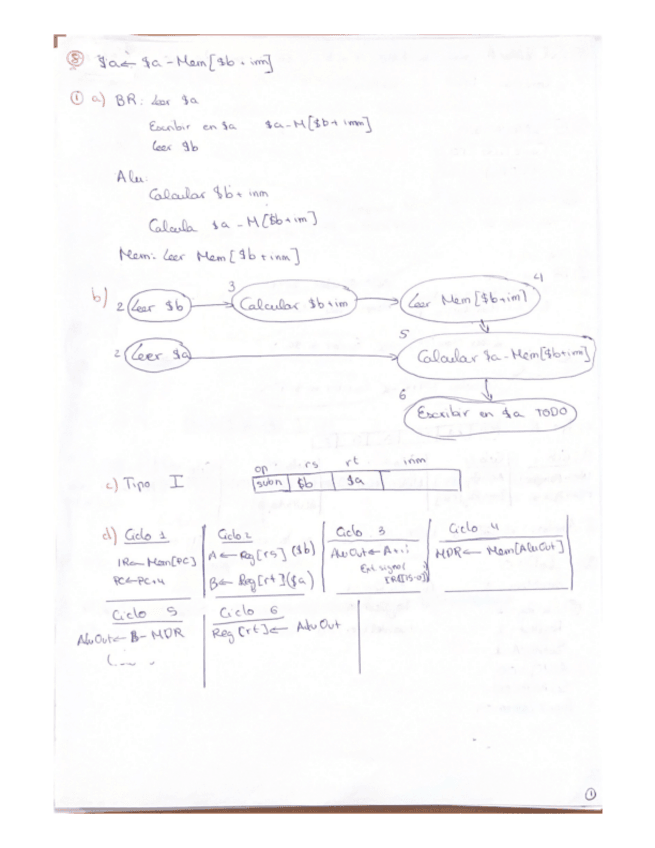 8 $a ← $a - Mem[$b + inm]
1 a) BR: Leer $a
Escribir en $a $a - M[$b + inm]
Leer $b
Alu:
Calcular $b + inm
Calcula $a - M[$b+im]
Mem: Leer Mem[$b+inm]
b) 2 Leer $b
3 Calcular $b+im
4 Leer Mem[$b+im]
2 Leer $a
5 Calcular $a - Mem[$b+im]
6 Escribir en $a TODO
c) Tipo I
op rs rt inm
subn $b $a
d) Ciclo 1
IR ← Mem[PC]
PC ← PC+4
Ciclo 2
A ← Reg[rs] ($b)
B ← Reg[rt] ($a)
Ciclo 3
AluOut ← A +
Ext. signo(
IR[15-0])
Ciclo 4
MDR ← Mem[AluOut]
Ciclo 5
AluOut ← B - MDR
Ciclo 6
Reg[rt] ← AluOut
1